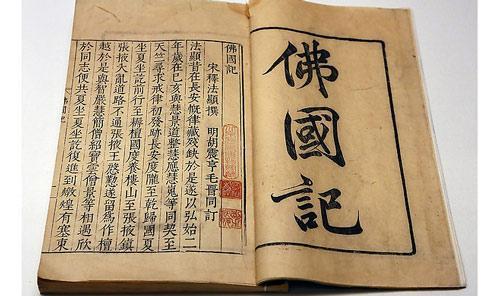 佛國記
佛國記
宋釋法顯撰
明胡震亨毛晉同訂
法顯昔在長安慨律藏殘缺於是遂以弘始二
年歲在己亥與慧景道整慧應慧嵬等同契至
天竺尋求戒律初發跡長安度隴至乾歸國夏
坐夏坐訖前行至耨檀國度養樓山至張掖鎮
張掖大亂道路不通張掖王慇懃遂留為作檀
越於是與智嚴慧簡僧紹寶雲僧景等相遇欣
於同志便共夏坐夏坐訖復進到燉煌有塞東
佛國記